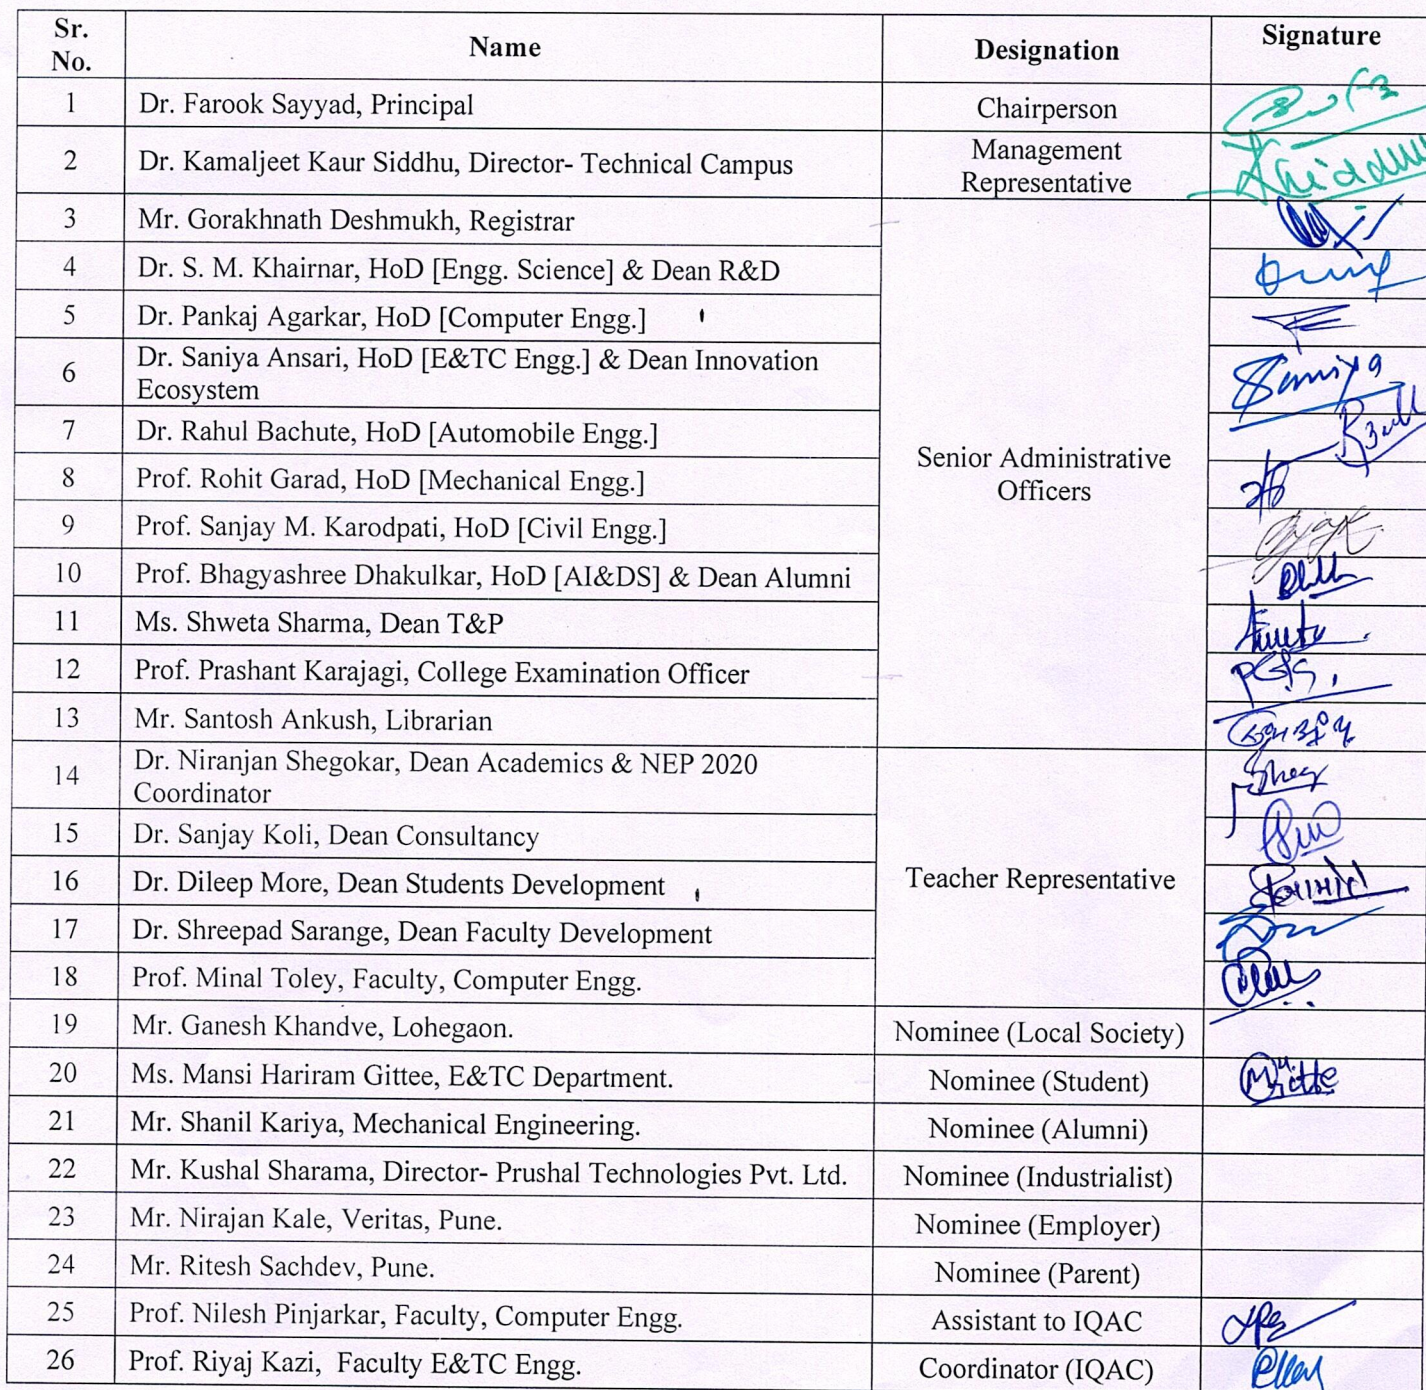 Sr. No. Name Designation Signature
1 Dr. Farook Sayyad, Principal Chairperson
2 Dr. Kamaljeet Kaur Siddhu, Director- Technical Campus Management Representative
3 Mr. Gorakhnath Deshmukh, Registrar Senior Administrative Officers
4 Dr. S. M. Khairnar, HoD [Engg. Science] & Dean R&D
5 Dr. Pankaj Agarkar, HoD [Computer Engg.]
6 Dr. Saniya Ansari, HoD [E&TC Engg.] & Dean Innovation Ecosystem Saniya
7 Dr. Rahul Bachute, HoD [Automobile Engg.]
8 Prof. Rohit Garad, HoD [Mechanical Engg.]
9 Prof. Sanjay M. Karodpati, HoD [Civil Engg.]
10 Prof. Bhagyashree Dhakulkar, HoD [AI&DS] & Dean Alumni
11 Ms. Shweta Sharma, Dean T&P
12 Prof. Prashant Karajagi, College Examination Officer
13 Mr. Santosh Ankush, Librarian
14 Dr. Niranjan Shegokar, Dean Academics & NEP 2020 Coordinator Teacher Representative
15 Dr. Sanjay Koli, Dean Consultancy
16 Dr. Dileep More, Dean Students Development
17 Dr. Shreepad Sarange, Dean Faculty Development
18 Prof. Minal Toley, Faculty, Computer Engg.
19 Mr. Ganesh Khandve, Lohegaon. Nominee (Local Society)
20 Ms. Mansi Hariram Gittee, E&TC Department. Nominee (Student)
21 Mr. Shanil Kariya, Mechanical Engineering. Nominee (Alumni)
22 Mr. Kushal Sharama, Director- Prushal Technologies Pvt. Ltd. Nominee (Industrialist)
23 Mr. Nirajan Kale, Veritas, Pune. Nominee (Employer)
24 Mr. Ritesh Sachdev, Pune. Nominee (Parent)
25 Prof. Nilesh Pinjarkar, Faculty, Computer Engg. Assistant to IQAC
26 Prof. Riyaj Kazi, Faculty E&TC Engg. Coordinator (IQAC)